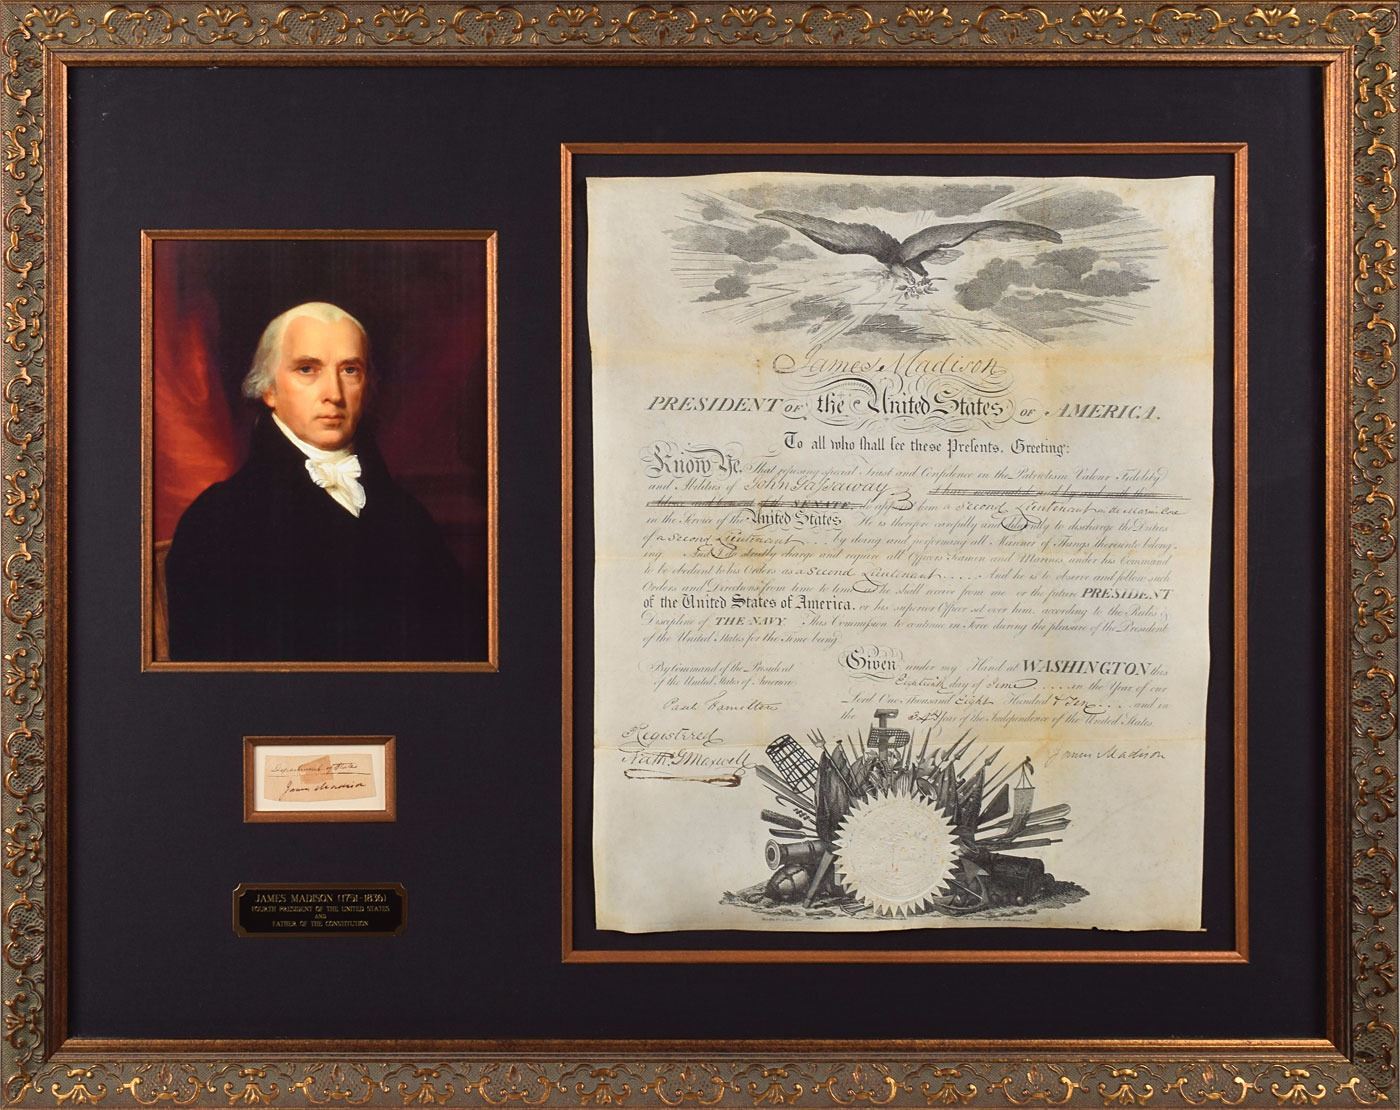 Department of State
James Madison
JAMES MADISON (1751-1836)
FOURTH PRESIDENT OF THE UNITED STATES
AND
FATHER OF THE CONSTITUTION
James Madison
PRESIDENT OF the United States OF AMERICA.
To all who shall see these Presents, Greeting:
Know Ye, That reposing special Trust and Confidence in the Patriotism Valour Fidelity
and Abilities of John Gassaway I have nominated and by and with the
Advice and Consent of the SENATE do appoint him a Second Lieutenant in the Marine Corps
in the Service of the United States He is therefore carefully and diligently to discharge the Duties
of a Second Lieutenant by doing and performing all Manner of Things thereunto belong-
ing. And I do strictly charge and require all Officers Seamen and Marines under his Command
to be obedient to his Orders as a Second Lieutenant .... And he is to observe and follow such
Orders and Directions from time to time as he shall receive from me or the future PRESIDENT
of the United States of America, or his superior Officer set over him, according to the Rules &
Discipline of THE NAVY. This Commission to continue in Force during the pleasure of the President
of the United States for the Time being
By Command of the President
of the United States of America
Paul Hamilton
Registered
Nath. G Maxwell
Given under my Hand at WASHINGTON this
Eighteenth day of June .... in the Year of our
Lord One Thousand Eight Hundred & Ten .... and in
the 34th Year of the Independence of the United States.
James Madison